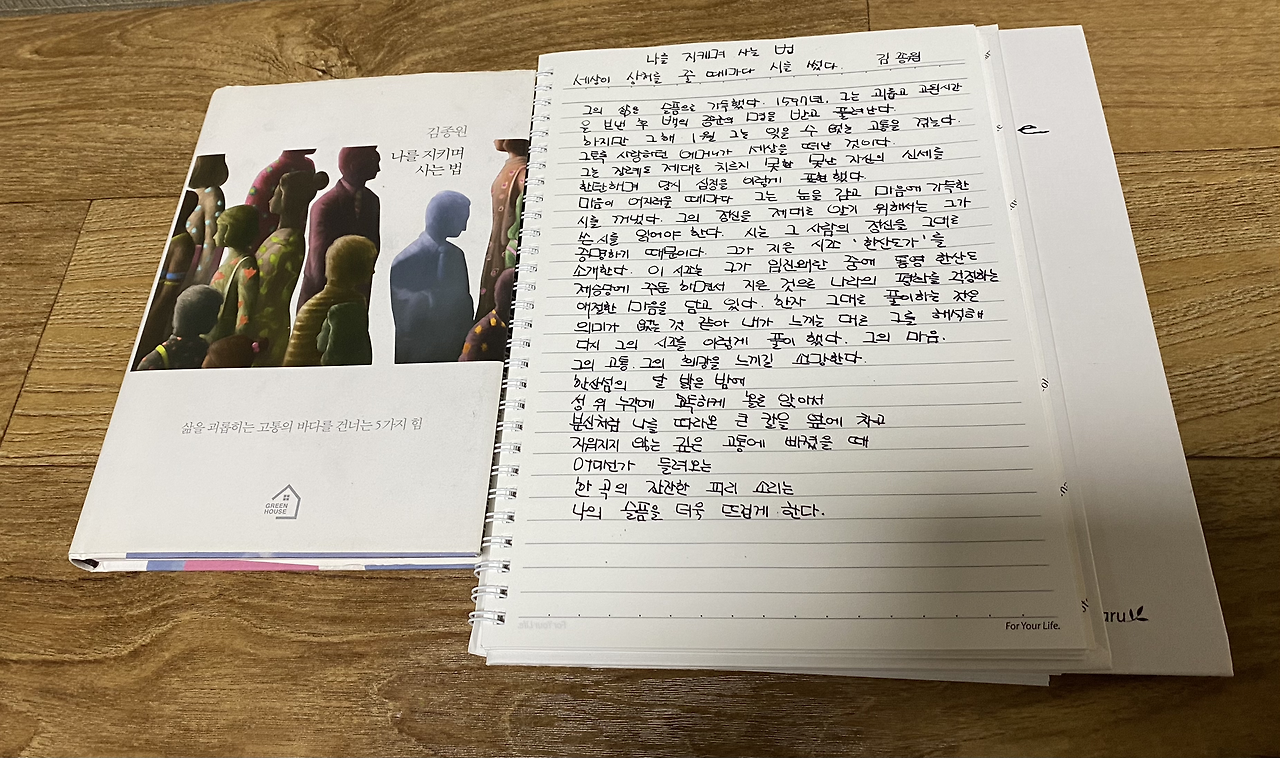 김종원
나를 지키며
사는 법
삶을 괴롭히는 고통의 바다를 건너는 5가지 힘
GREEN
HOUSE
나를 지키며 사는 법
세상이 상처를 줄 때마다 시를 썼다. 김종원
그의 삶은 슬픔으로 가득했다. 1597년, 그는 괴롭고 고된시간
을 보낸 후 백의 종군의 명을 받고 풀려난다.
하지만 그해 1월 그는 잊을 수 없는 고통을 겪는다.
그토록 사랑하던 어머니가 세상을 떠난 것이다.
그는 장례도 제대로 치르지 못한 못난 자신의 신세를
한탄하며 당시 심정을 이렇게 표현했다.
마음이 어지러울 때마다 그는 눈을 감고 마음에 가득한
시를 꺼냈다. 그의 정신을 제대로 알기 위해서는 그가
쓴 시를 읽어야 한다. 시는 그 사람의 정신을 그대로
증명하기 때문이다. 그가 지은 시조 '한산도가'를
소개한다. 이 시조는 그가 임진왜란 중에 통영 한산도
제승당에 주둔 하면서 지은 것으로 나라의 평화를 걱정하는
애절한 마음을 담고 있다. 한자 그대로 풀이하는 것은
의미가 없는 것 같아 내가 느끼는 대로 그를 해석해
다시 그의 시조를 이렇게 풀이 했다. 그의 마음.
그의 고통. 그의 희망을 느끼길 소망한다.
한산섬의 달 밝은 밤에
성 위 누각에 고독하게 홀로 앉아서
분신처럼 나를 따라온 큰 칼을 옆에 차고
지워지지 않는 깊은 고통에 빠졌을 때
어디선가 들려오는
한 곡의 잔잔한 피리 소리는
나의 슬픔을 더욱 뜨겁게 한다.
For Your Life.